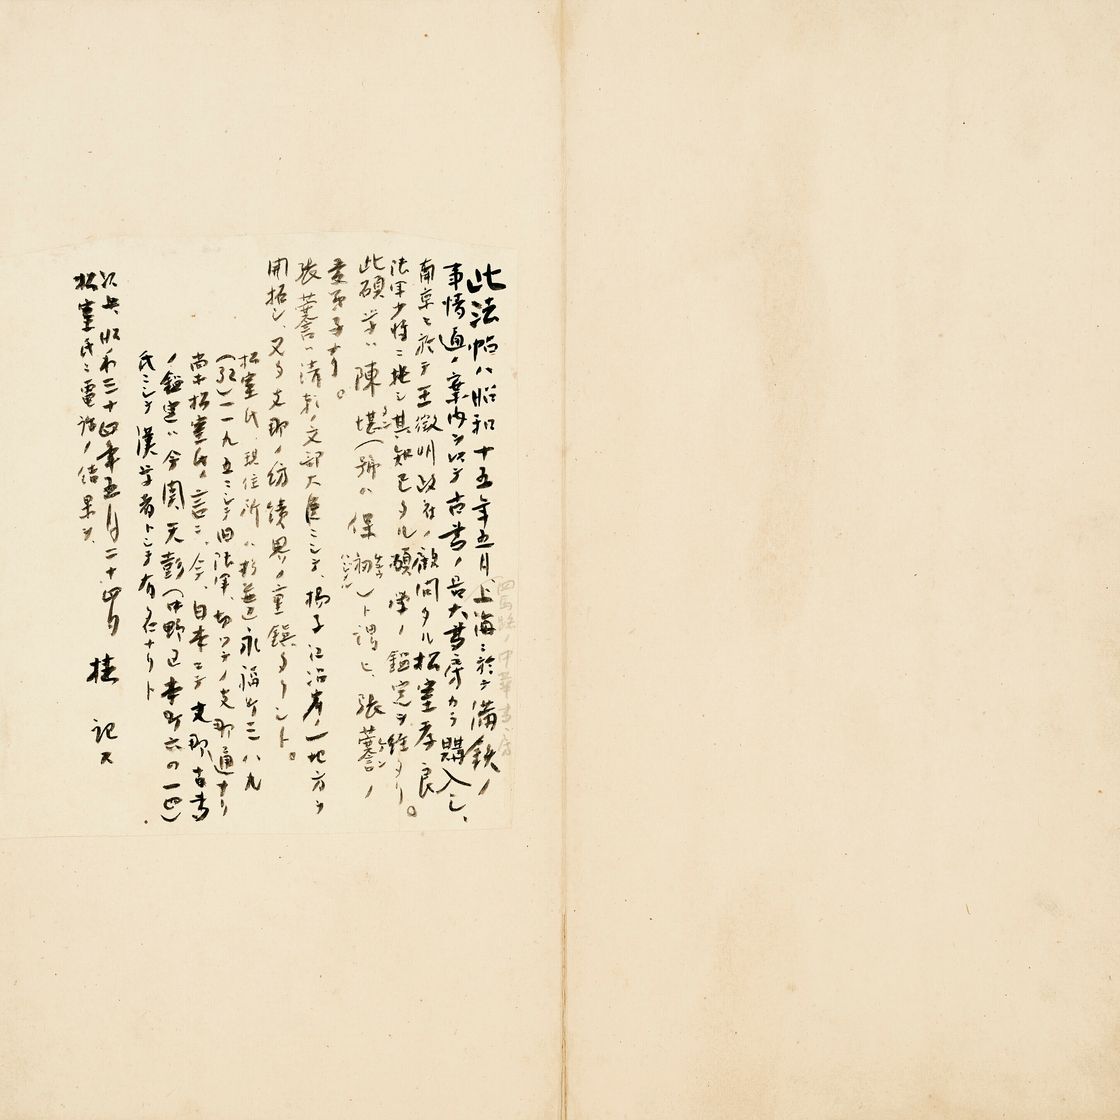 此法帖ハ昭和十五年五月上海ニ於テ満鉄ノ
四馬路ノ中華書房
事情通ノ案内ヲ以テ古書ノ呂大書房カラ購入シ、
南京ニ於テ王徴明政府ノ顧問タル松室孝良
陸軍少将ニ托シ其知己タル碩学ノ鑑定ヲ経タリ。
此碩学ハ陳堪(號ハ保初)ト謂ヒ、張謇ノ
愛弟子ナリ。
張謇ハ清朝ノ文部大臣ニシテ、揚子江沿岸ノ一地方ヲ
開拓シ、又タ支那ノ紡績界ノ重鎮タリシト。
松室氏、現住所ハ杉並区永福町三八九
(32)一九五三ニシテ旧陸軍切ツテノ支那通ナリ
尚ホ松室氏ノ言ニ、今、日本ニテ支那古書
ノ鑑定ハ今関天彭(中野区本町六の一四)
氏ニシテ漢学者トシテ有名ナリト
以上、昭和三十四年五月二十四日
松室氏ニ電話ノ結果ヲ、
桂 記ス